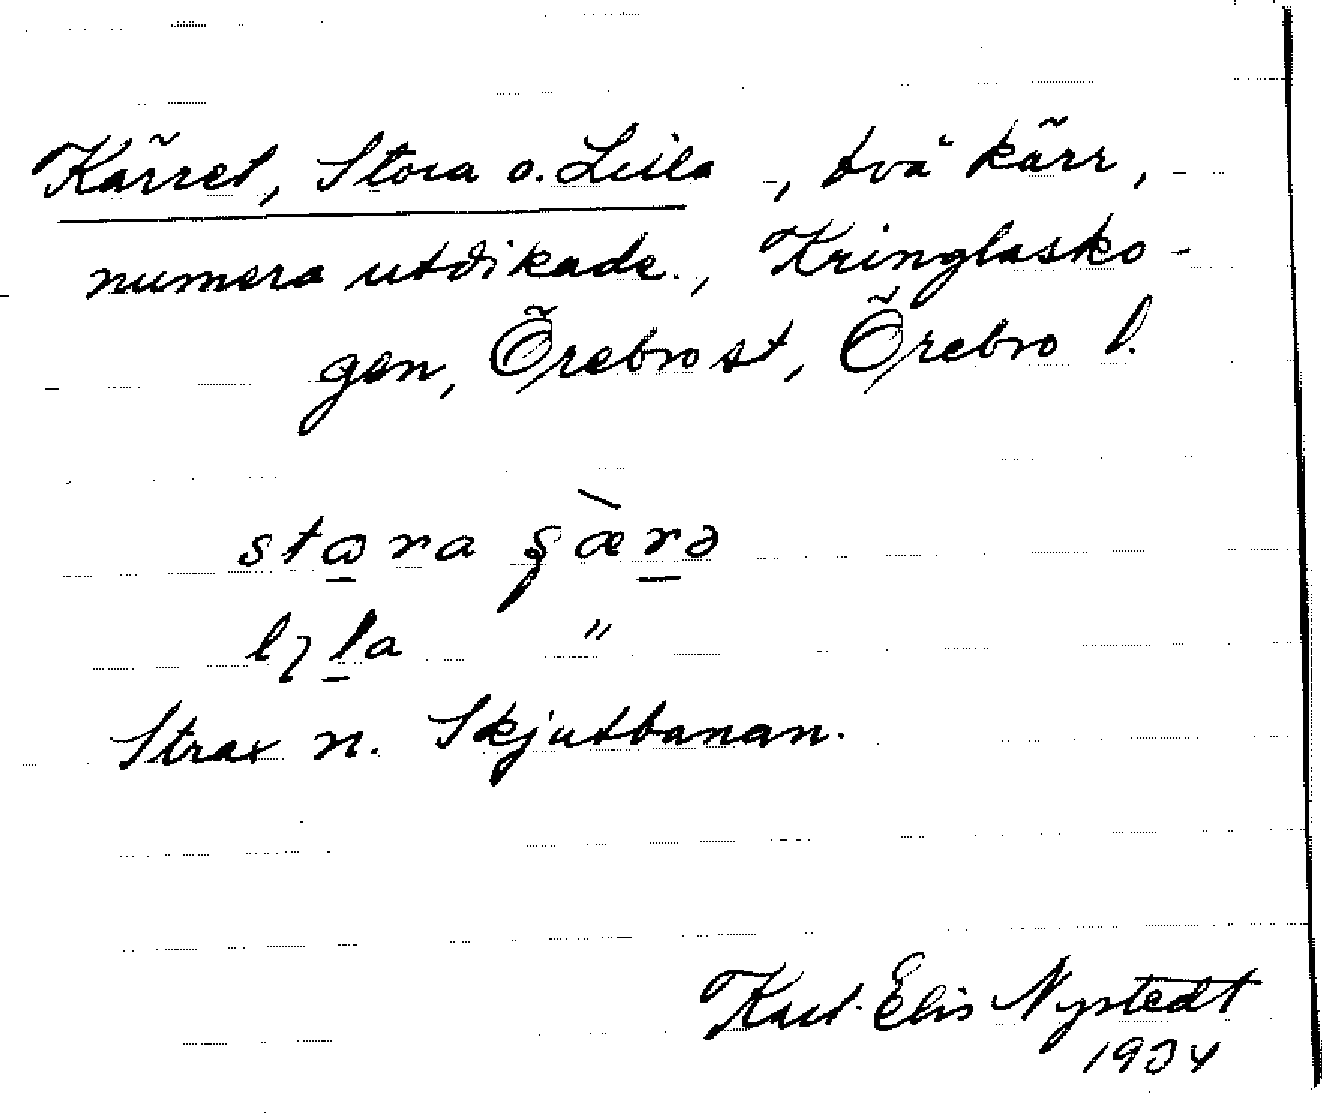 Kärret, Stora o. Lilla, två kärr,
numera utdikade., Kringlasko-
gen, Örebro st, Örebro l.
stɷra ʂæ̀rə
lɿla "
Strax n. Skjutbanan.
Karl-Elis Nystedt
1934